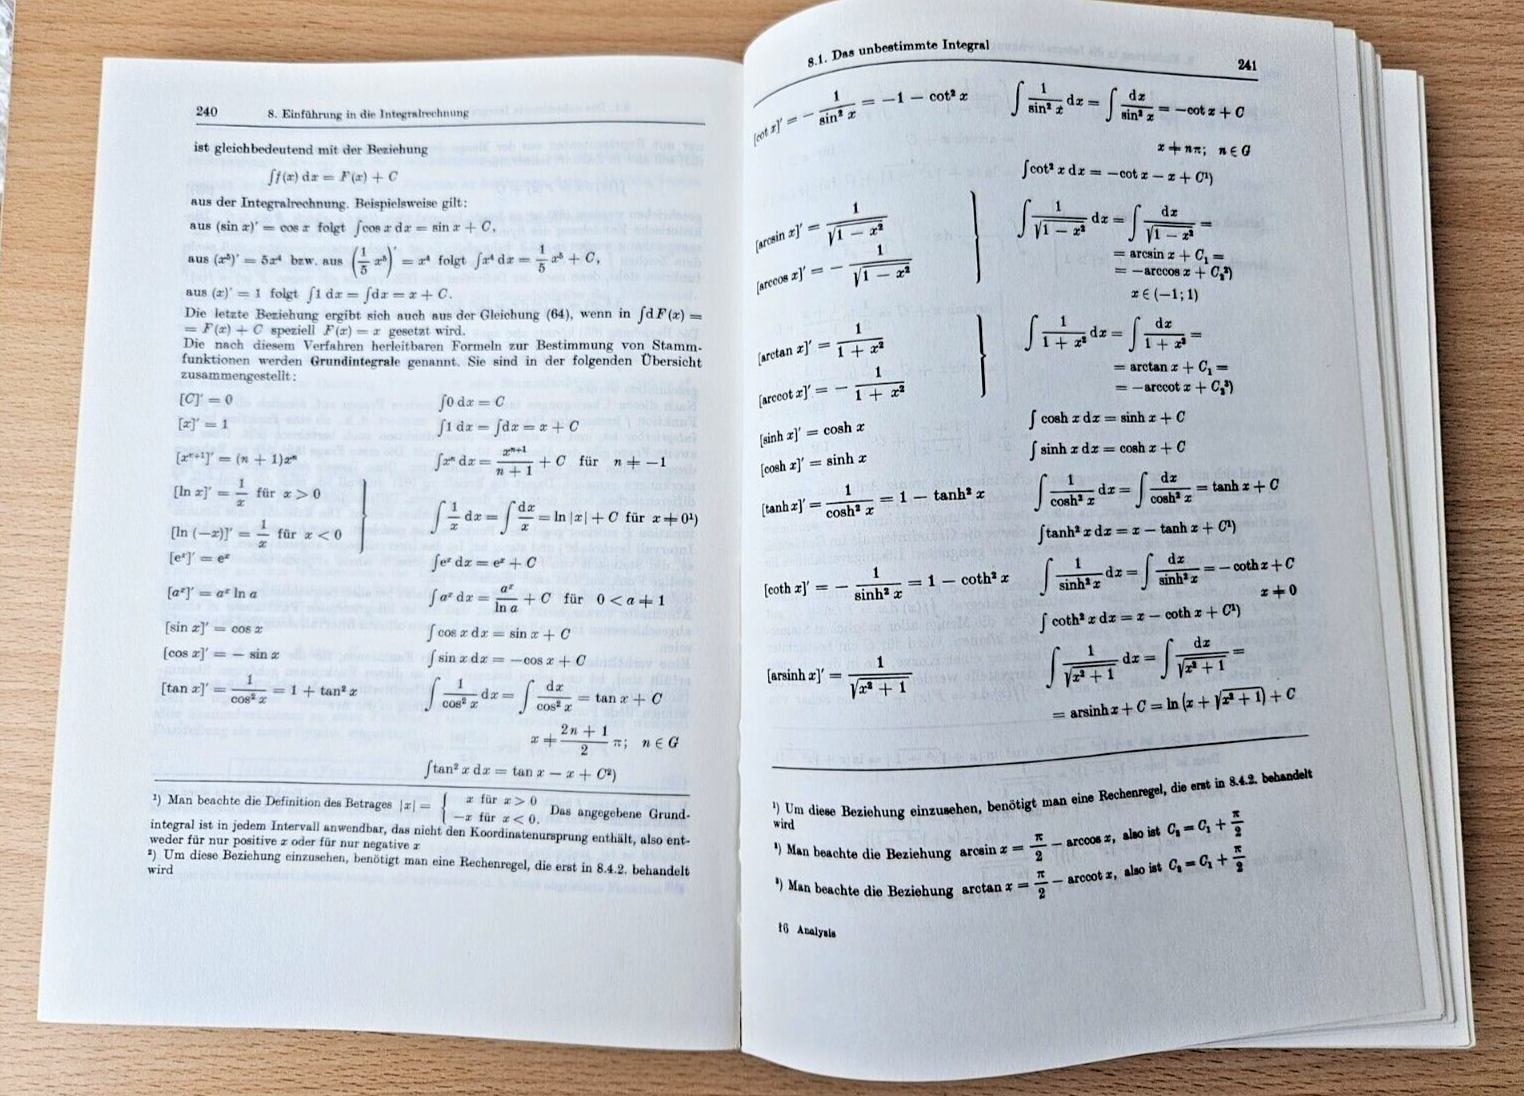 240 8. Einführung in die Integralrechnung
ist gleichbedeutend mit der Beziehung
∫f(x) dx = F(x) + C
aus der Integralrechnung. Beispielsweise gilt:
aus (sin x)′ = cos x folgt ∫cos x dx = sin x + C,
aus (x⁵)′ = 5x⁴ bzw. aus (1/5 x⁵)′ = x⁴ folgt ∫x⁴ dx = 1/5 x⁵ + C,
aus (x)′ = 1 folgt ∫1 dx = ∫dx = x + C.
Die letzte Beziehung ergibt sich auch aus der Gleichung (64), wenn in ∫dF(x) =
= F(x) + C speziell F(x) = x gesetzt wird.
Die nach diesem Verfahren herleitbaren Formeln zur Bestimmung von Stamm-
funktionen werden Grundintegrale genannt. Sie sind in der folgenden Übersicht
zusammengestellt:
[C]′ = 0 ∫0 dx = C
[x]′ = 1 ∫1 dx = ∫dx = x + C
[xⁿ⁺¹]′ = (n + 1)xⁿ ∫xⁿ dx = xⁿ⁺¹/(n + 1) + C für n ≠ −1
[ln x]′ = 1/x für x > 0
∫ 1/x dx = ∫ dx/x = ln |x| + C für x ≠ 0¹)
[ln (−x)]′ = 1/x für x < 0
[eˣ]′ = eˣ ∫eˣ dx = eˣ + C
[aˣ]′ = aˣ ln a ∫aˣ dx = aˣ/ln a + C für 0 < a ≠ 1
[sin x]′ = cos x ∫cos x dx = sin x + C
[cos x]′ = − sin x ∫sin x dx = −cos x + C
[tan x]′ = 1/cos² x = 1 + tan² x ∫ 1/cos² x dx = ∫ dx/cos² x = tan x + C
x ≠ (2n + 1)/2 π; n ∈ G
∫tan² x dx = tan x − x + C²)
¹) Man beachte die Definition des Betrages |x| = { x für x > 0 −x für x < 0. Das angegebene Grund-
integral ist in jedem Intervall anwendbar, das nicht den Koordinatenursprung enthält, also ent-
weder für nur positive x oder für nur negative x
²) Um diese Beziehung einzusehen, benötigt man eine Rechenregel, die erst in 8.4.2. behandelt
wird
8.1. Das unbestimmte Integral 241
[cot x]′ = − 1/sin² x = −1 − cot² x ∫ 1/sin² x dx = ∫ dx/sin² x = −cot x + C
x ≠ nπ; n ∈ G
∫cot² x dx = −cot x − x + C¹)
[arcsin x]′ = 1/√(1 − x²) ∫ 1/√(1 − x²) dx = ∫ dx/√(1 − x²) =
= arcsin x + C₁ =
[arccos x]′ = − 1/√(1 − x²) = −arccos x + C₂²)
x ∈ (−1; 1)
[arctan x]′ = 1/(1 + x²) ∫ 1/(1 + x²) dx = ∫ dx/(1 + x²) =
= arctan x + C₁ =
[arccot x]′ = − 1/(1 + x²) = −arccot x + C₂³)
[sinh x]′ = cosh x ∫cosh x dx = sinh x + C
[cosh x]′ = sinh x ∫sinh x dx = cosh x + C
[tanh x]′ = 1/cosh² x = 1 − tanh² x ∫ 1/cosh² x dx = ∫ dx/cosh² x = tanh x + C
∫tanh² x dx = x − tanh x + C¹)
[coth x]′ = − 1/sinh² x = 1 − coth² x ∫ 1/sinh² x dx = ∫ dx/sinh² x = − coth x + C
x ≠ 0
∫coth² x dx = x − coth x + C¹)
[arsinh x]′ = 1/√(x² + 1) ∫ 1/√(x² + 1) dx = ∫ dx/√(x² + 1) =
= arsinh x + C = ln (x + √(x² + 1)) + C
¹) Um diese Beziehung einzusehen, benötigt man eine Rechenregel, die erst in 8.4.2. behandelt
wird
²) Man beachte die Beziehung arcsin x = π/2 − arccos x, also ist C₂ = C₁ + π/2
³) Man beachte die Beziehung arctan x = π/2 − arccot x, also ist C₂ = C₁ + π/2
16 Analysis